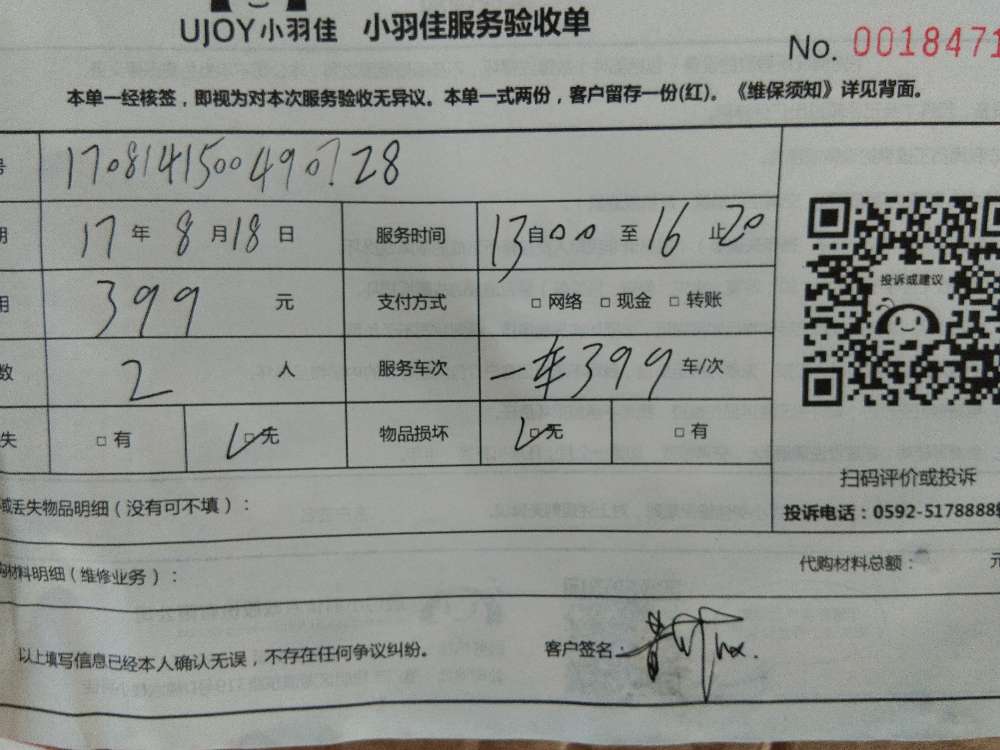 UJOY小羽佳 小羽佳服务验收单
No. 0018471
本单一经核签，即视为对本次服务验收无异议。本单一式两份，客户留存一份(红)。《维保须知》详见背面。
号 1708141500490728
期 17 年 8 月 18 日 服务时间 13 自 00 至 16 止 20
用 399 元 支付方式 □ 网络 □ 现金 □ 转账
数 2 人 服务车次 一车399 车/次
失 □ 有 □ 无 物品损坏 □ 无 □ 有
投诉或建议
扫码评价或投诉
投诉电话：0592-5178888
或丢失物品明细（没有可不填）：
购材料明细（维修业务）：
代购材料总额： 元
以上填写信息已经本人确认无误，不存在任何争议纠纷。
客户签名：